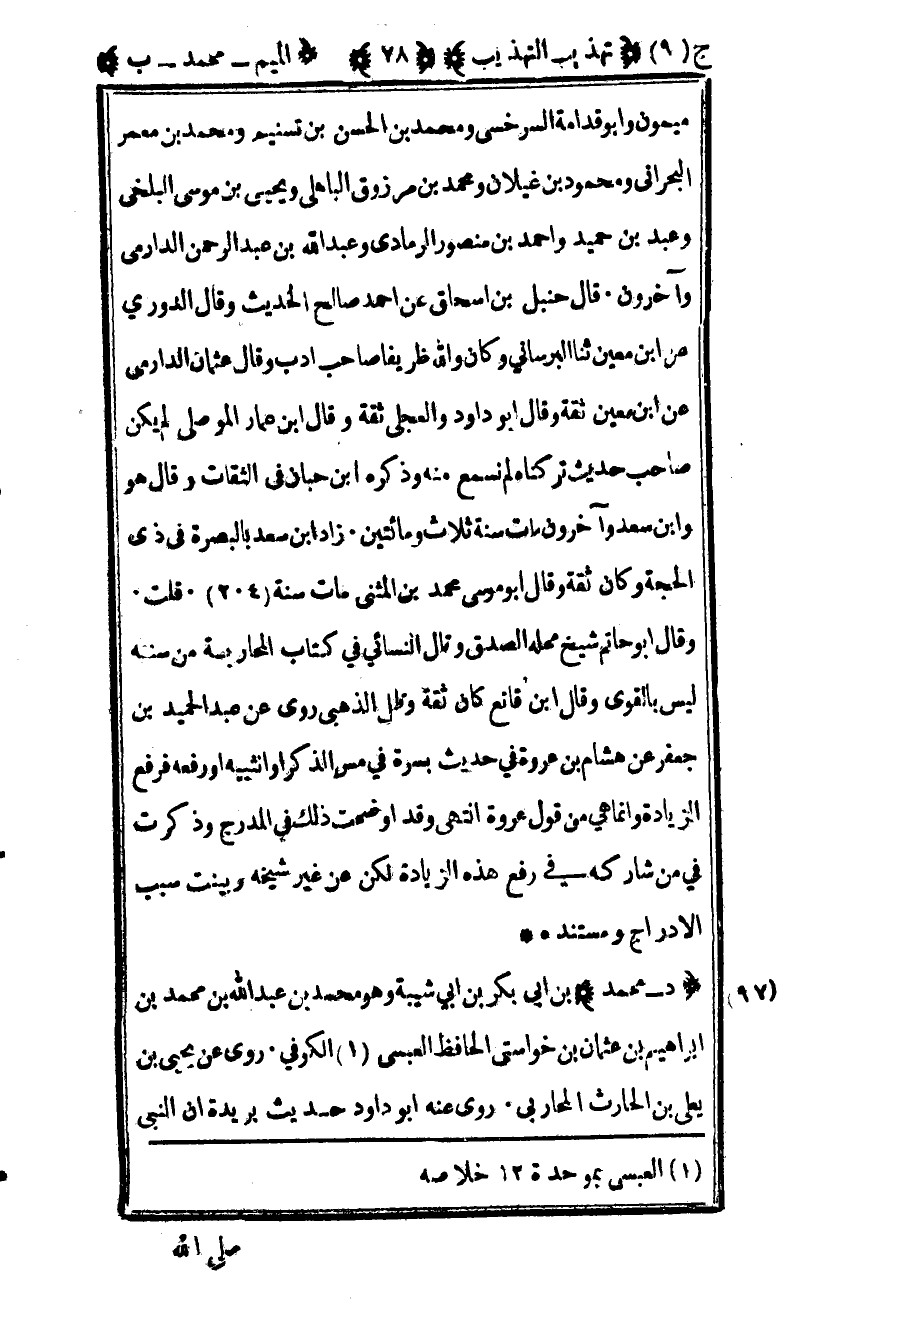 ج (٩) ﴿ تهذيب التهذيب ﴾ ﴿ ٧٨ ﴾ ﴿ الميم ـ محمد ـ ب ﴾
ميمون وابو قدامة السرخسى ومحمد بن الحسن بن تسنيم ومحمد بن معمر
البحرانى ومحمود بن غيلان ومحمد بن مرزوق الباهلى ويحيى بن موسى البلخى
وعبد بن حميد واحمد بن منصور الرمادى وعبدالله بن عبدالرحمن الدارمى
وآخرون ٠ قال حنبل بن اسحاق عن احمد صالح الحديث وقال الدوري
عن ابن معين ثنا البرساني وكان والله ظريفا صاحب ادب وقال عثمان الدارمى
عن ابن معين ثقة وقال ابو داود والعجلى ثقة وقال ابن عمار الموصلى لم يكن
صاحب حديث تركناه لم نسمع منه وذكره ابن حبان فى الثقات وقال هو
وابن سعد وآخرون مات سنة ثلاث ومائتين ٠ زاد ابن سعد بالبصرة فى ذى
الحجة وكان ثقة وقال ابو موسى محمد بن المثنى مات سنة (٢٠٤) ٠ قلت ٠
وقال ابو حاتم شيخ محله الصدق وقال النسائي في كتاب المحاربة من سننه
ليس بالقوى وقال ابن قانع كان ثقة وقال الذهبى روى عن عبد الحميد بن
جعفر عن هشام بن عروة في حديث بسرة في مس الذكر او انثييه او رفعه فرفع
الزيادة وانما هي من قول عروة انتهى وقد اوضحت ذلك في المدرج وذكرت
في من شاركه في رفع هذه الزيادة لكن عن غير شيخه وبينت سبب
الادراج ومستنده **
(٩٧) ﴿ د ـ محمد ﴾ بن ابى بكر بن ابي شيبة وهو محمد بن عبدالله بن محمد بن
ابراهيم بن عثمان بن خواستى الحافظ العبسى (١) الكوفي ٠ روى عن يحيى بن
يعلى بن الحارث المحاربى ٠ روى عنه ابو داود حديث بريدة ان النبى
(١) العبسى بموحدة ١٢ خلاصه
صلى الله